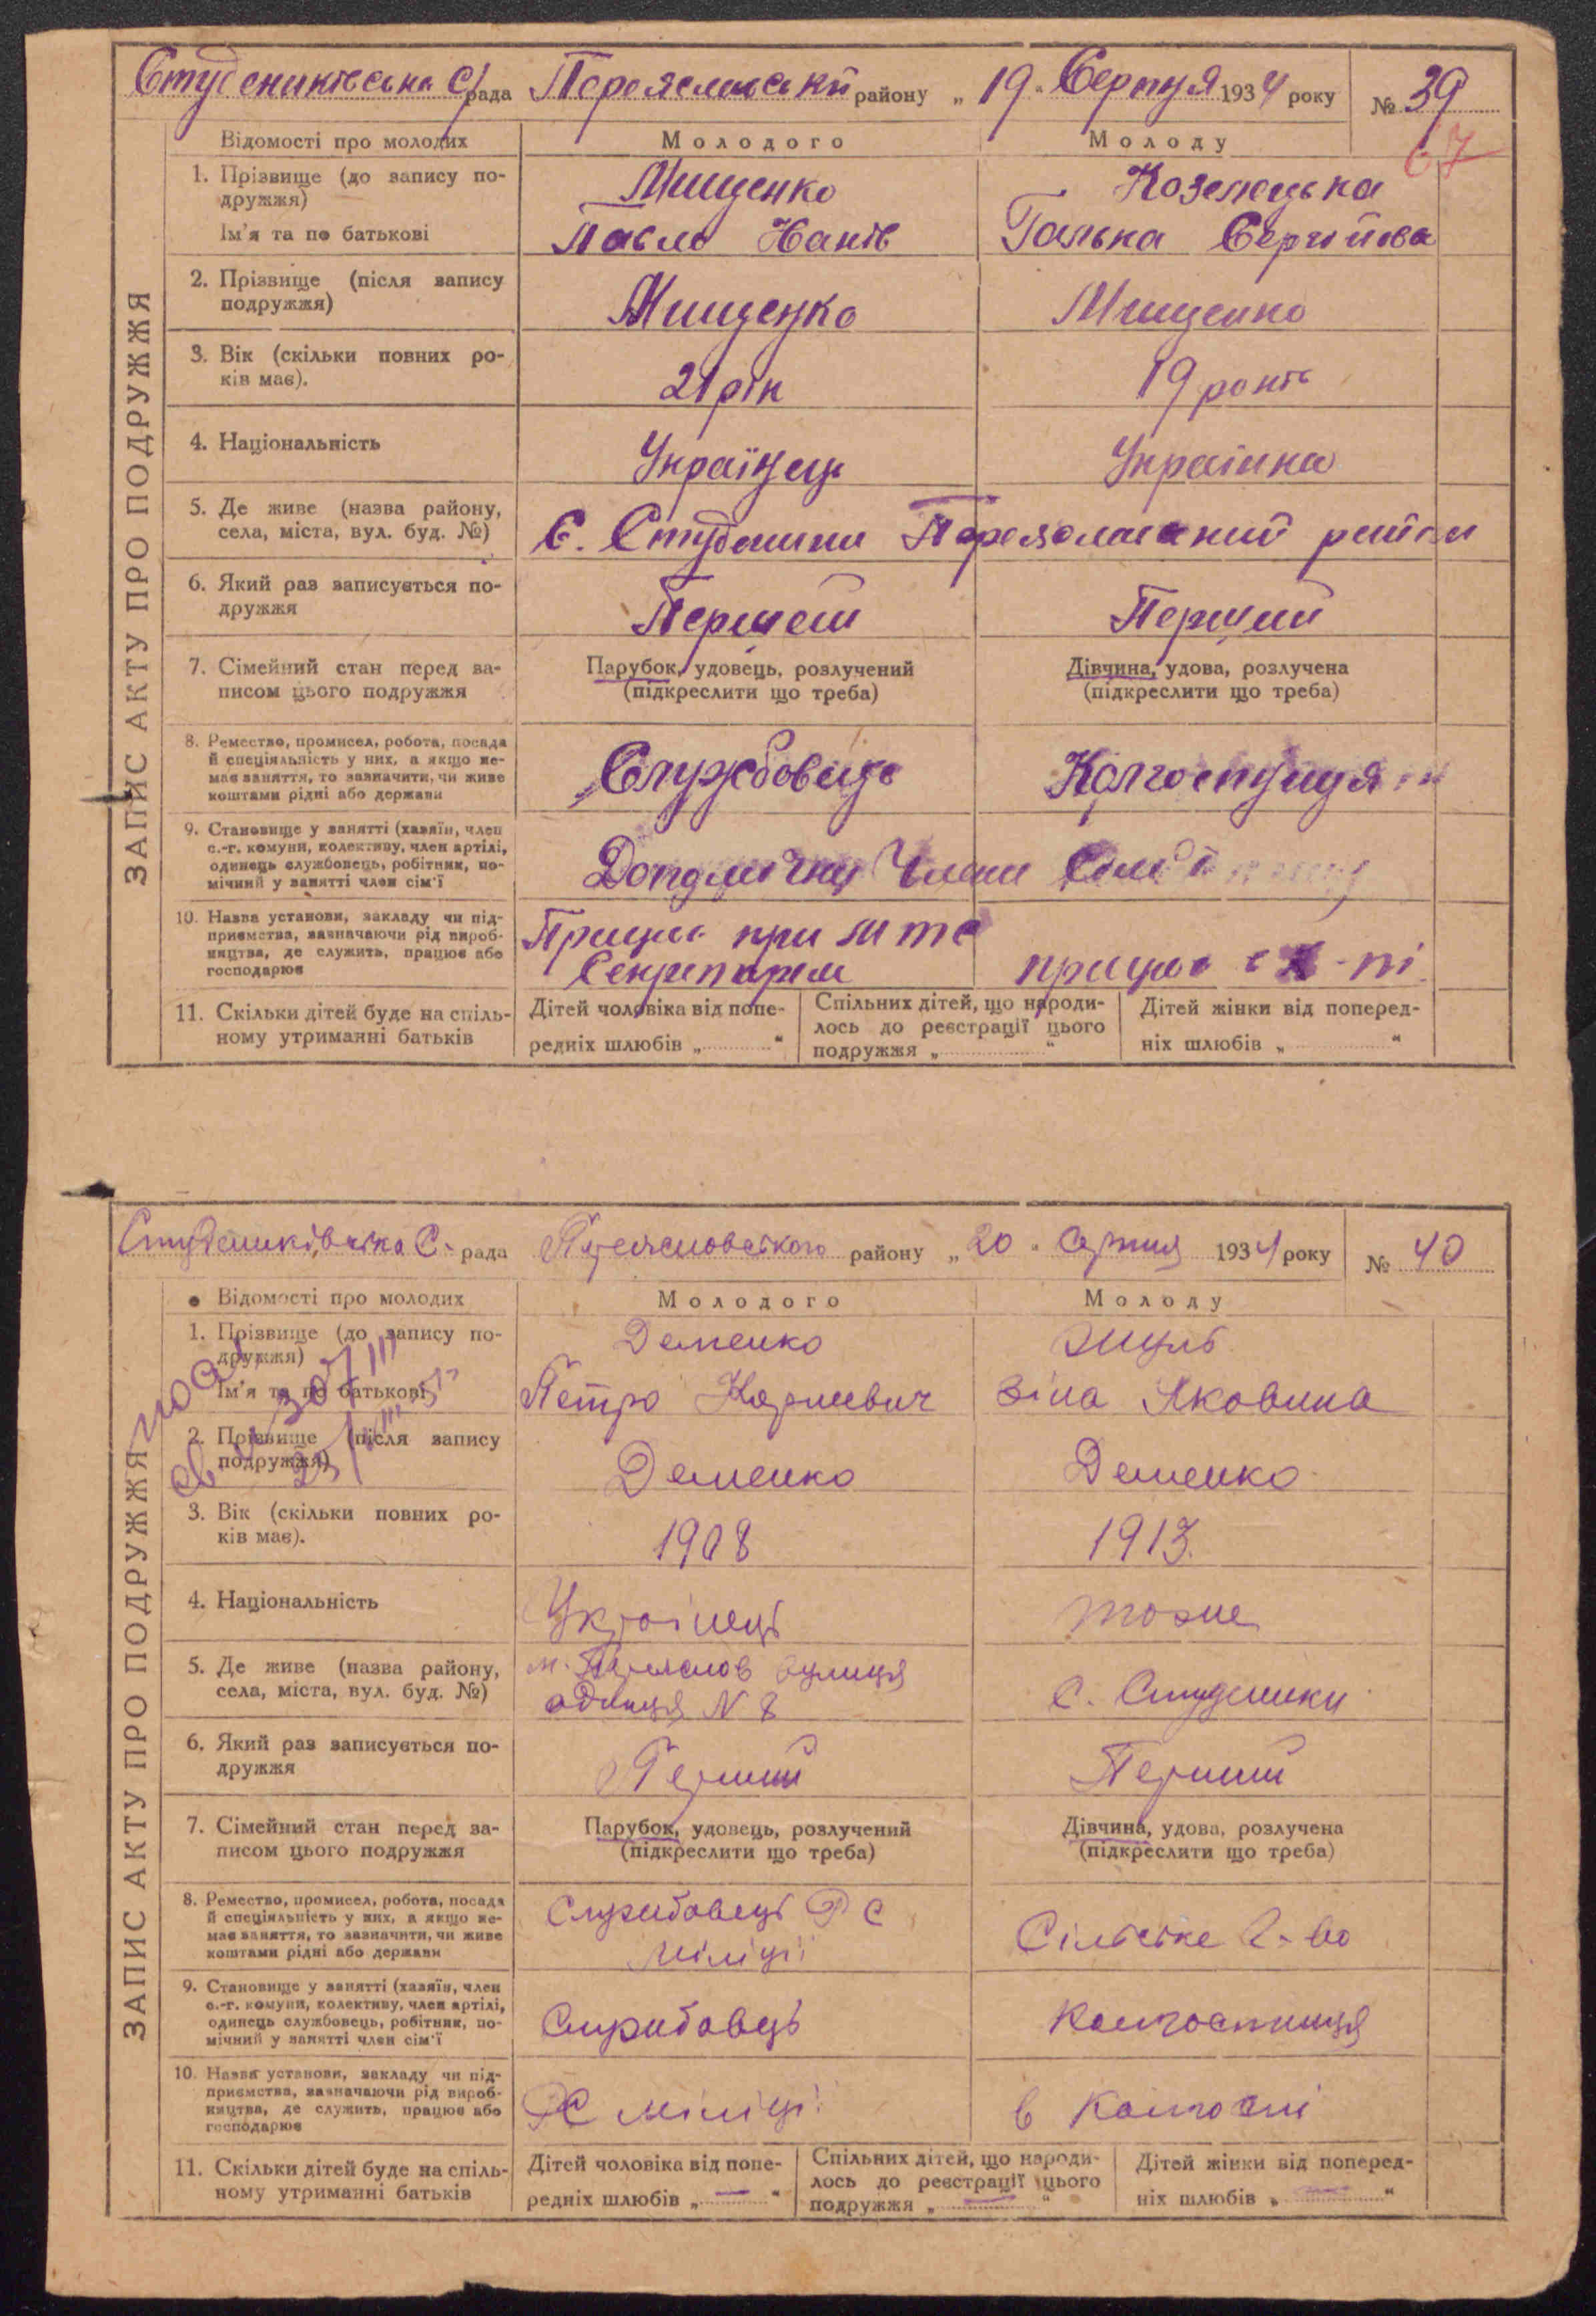 Студениківська с/рада Переяславський району „19“ Серпня 1934 року № 39
67
ЗАПИС АКТУ ПРО ПОДРУЖЖЯ
Відомості про молодих Молодого Молоду
1. Прізвище (до запису по-
дружжя) Мищенко Козелецька
Ім'я та по батькові Павло Іванів Галька Сергійова
2. Прізвище (після запису
подружжя) Мищенко Мищенко
3. Вік (скільки повних ро-
ків має). 21 рік 19 років
4. Національність Українець Українка
5. Де живе (назва району,
села, міста, вул. буд. №) С. Студеники Переяславский район
6. Який раз записується по-
дружжя Перший Перший
7. Сімейний стан перед за- Парубок, удовець, розлучений Дівчина, удова, розлучена
писом цього подружжя (підкреслити що треба) (підкреслити що треба)
8. Ремество, промисел, робота, посада
й спеціяльність у них, а якщо не-
має заняття, то зазначити, чи живе
коштами рідні або держави
Службовець Колгоспниця
9. Становище у занятті (хазяїн, член
с.-г. комуни, колективу, член артілі,
одинець службовець, робітник, по-
мічний у занятті член сім'ї
Член Сімї
10. Назва установи, закладу чи під-
приємства, зазначаючи рід вироб-
ництва, де служить, працює або
господарює
Працює при МТС
Секретарем працює
11. Скільки дітей буде на спіль-
ному утриманні батьків
Дітей чоловіка від попе-
редніх шлюбів „ “
Спільних дітей, що народи-
лось до реєстрації цього
подружжя „ “
Дітей жінки від поперед-
ніх шлюбів „ “
Студениківська С. рада Переяславського району „20“ серпня 1934 року № 40
ЗАПИС АКТУ ПРО ПОДРУЖЖЯ
Відомості про молодих Молодого Молоду
1. Прізвище (до запису по-
дружжя) Деменко Шуль
Ім'я та по батькові Петро Карпович Зіна Яковина
2. Прізвище (після запису
подружжя) Деменко Деменко
3. Вік (скільки повних ро-
ків має). 1908 1913
4. Національність Українець тоже
5. Де живе (назва району, м. Переяслов вулиця
села, міста, вул. буд. №) N 8 С. Студеники
6. Який раз записується по-
дружжя Перший Перший
7. Сімейний стан перед за- Парубок, удовець, розлучений Дівчина, удова, розлучена
писом цього подружжя (підкреслити що треба) (підкреслити що треба)
8. Ремество, промисел, робота, посада
й спеціяльність у них, а якщо не-
має заняття, то зазначити, чи живе
коштами рідні або держави
Службовець РС
міліції Сільське г-во
9. Становище у занятті (хазяїн, член
с.-г. комуни, колективу, член артілі,
одинець службовець, робітник, по-
мічний у занятті член сім'ї
Службовець Колгоспниця
10. Назва установи, закладу чи під-
приємства, зазначаючи рід вироб-
ництва, де служить, працює або
господарює
РС міліції в колгоспі
11. Скільки дітей буде на спіль-
ному утриманні батьків
Дітей чоловіка від попе-
редніх шлюбів „ — “
Спільних дітей, що народи-
лось до реєстрації цього
подружжя „ — “
Дітей жінки від поперед-
ніх шлюбів „ — “